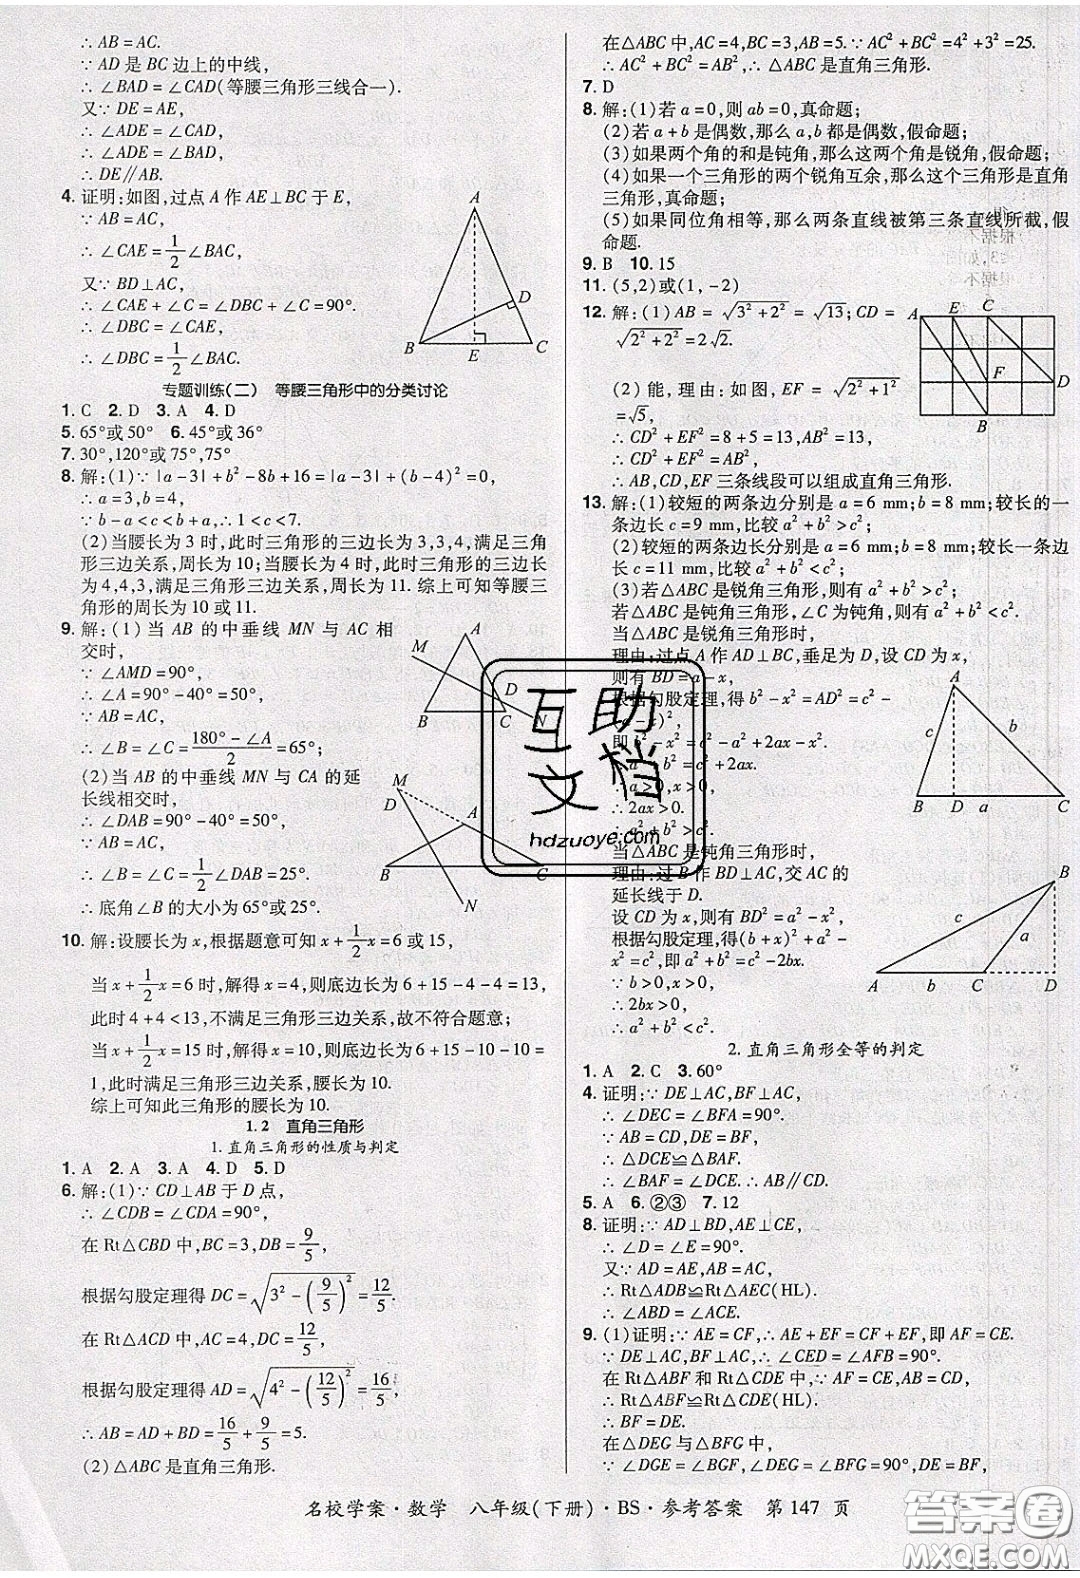 ∴ AB=AC.
∵ AD 是 BC 边上的中线,
∴ ∠BAD=∠CAD(等腰三角形三线合一).
又∵ DE=AE,
∴ ∠ADE=∠CAD,
∴ ∠ADE=∠BAD,
∴ DE∥AB.
4. 证明:如图,过点 A 作 AE⊥BC 于 E,
∵ AB=AC,
∴ ∠CAE=1/2∠BAC,
又∵ BD⊥AC,
∴ ∠CAE+∠C=∠DBC+∠C=90°.
∴ ∠DBC=∠CAE,
∴ ∠DBC=1/2∠BAC.
A
D
B E C
专题训练(二) 等腰三角形中的分类讨论
1. C 2. D 3. A 4. D
5. 65°或50° 6. 45°或36°
7. 30°,120°或75°,75°
8. 解:(1)∵ |a-3|+b²-8b+16=|a-3|+(b-4)²=0,
∴ a=3,b=4,
∵ b-a<c<b+a,∴ 1<c<7.
(2)当腰长为 3 时,此时三角形的三边长为 3,3,4,满足三角
形三边关系,周长为 10;当腰长为 4 时,此时三角形的三边长
为 4,4,3,满足三角形三边关系,周长为 11. 综上可知等腰三
角形的周长为 10 或 11.
9. 解:(1) 当 AB 的中垂线 MN 与 AC 相
交时,
∵ ∠AMD=90°,
∴ ∠A=90°-40°=50°,
∵ AB=AC,
∴ ∠B=∠C=(180°-∠A)/2=65°;
(2)当 AB 的中垂线 MN 与 CA 的延
长线相交时,
∴ ∠DAB=90°-40°=50°,
∵ AB=AC,
∴ ∠B=∠C=1/2∠DAB=25°.
∴ 底角∠B 的大小为 65°或 25°.
M A
D
B C N
M
D A
B C
N
10. 解:设腰长为 x,根据题意可知 x+1/2x=6 或 15,
当 x+1/2x=6 时,解得 x=4,则底边长为 6+15-4-4=13,
此时 4+4<13,不满足三角形三边关系,故不符合题意;
当 x+1/2x=15 时,解得 x=10,则底边长为 6+15-10-10=
1,此时满足三角形三边关系,腰长为 10.
综上可知此三角形的腰长为 10.
1.2 直角三角形
1. 直角三角形的性质与判定
1. A 2. A 3. A 4. D 5. D
6. 解:(1)∵ CD⊥AB 于 D 点,
∴ ∠CDB=∠CDA=90°,
在 Rt△CBD 中,BC=3,DB=9/5,
根据勾股定理得 DC=√(3²-(9/5)²)=12/5.
在 Rt△ACD 中,AC=4,DC=12/5,
根据勾股定理得 AD=√(4²-(12/5)²)=16/5,
∴ AB=AD+BD=16/5+9/5=5.
(2)△ABC 是直角三角形.
在△ABC 中,AC=4,BC=3,AB=5.∵ AC²+BC²=4²+3²=25.
∴ AC²+BC²=AB²,∴ △ABC 是直角三角形.
7. D
8. 解:(1)若 a=0,则 ab=0,真命题;
(2)若 a+b 是偶数,那么 a,b 都是偶数,假命题;
(3)如果两个角的和是钝角,那么这两个角是锐角,假命题;
(4)如果一个三角形的两个锐角互余,那么这个三角形是直角
三角形,真命题;
(5)如果同位角相等,那么两条直线被第三条直线所截,假
命题.
9. B 10. 15
11. (5,2)或(1,-2)
12. 解:(1) AB = √(3²+2²) = √13;CD =
√(2²+2²)=2√2.
(2) 能,理由:如图,EF = √(2²+1²)
=√5,
∴ CD²+EF²=8+5=13,AB²=13,
∴ CD²+EF²=AB²,
∴ AB,CD,EF 三条线段可以组成直角三角形.
A E C
F
D
B
13. 解:(1)较短的两条边分别是 a=6 mm;b=8 mm;较长的一
条边长 c=9 mm,比较 a²+b²>c²;
(2)较短的两条边长分别是 a=6 mm;b=8 mm;较长一条边
长 c=11 mm,比较 a²+b²<c²;
(3)若△ABC 是锐角三角形,则有 a²+b²>c²;
若△ABC 是钝角三角形,∠C 为钝角,则有 a²+b²<c².
当△ABC 是锐角三角形时,
理由:过点 A 作 AD⊥BC,垂足为 D,设 CD 为 x,
则有 BD=a-x,
根据勾股定理,得 b²-x²=AD²=c²-
(a-x)²,
即 b²-x²=c²-a²+2ax-x².
∴ a²+b²=c²+2ax.
∵ a>0,x>0,
∴ 2ax>0.
∴ a²+b²>c².
当△ABC 是钝角三角形时,
理由:过 B 作 BD⊥AC,交 AC 的
延长线于 D.
设 CD 为 x,则有 BD²=a²-x²,
根据勾股定理,得(b+x)²+a²-
x²=c²,即 a²+b²=c²-2bx.
∵ b>0,x>0,
∴ 2bx>0,
∴ a²+b²<c².
A
c b
B D a C
B
c
a
A b C D
2. 直角三角形全等的判定
1. A 2. C 3. 60°
4. 证明:∵ DE⊥AC,BF⊥AC,
∴ ∠DEC=∠BFA=90°.
∵ AB=CD,DE=BF,
∴ △DCE≌△BAF.
∴ ∠BAF=∠DCE.∴ AB∥CD.
5. A 6. ②③ 7. 12
8. 证明:∵ AD⊥BD,AE⊥CE,
∴ ∠D=∠E=90°.
又∵ AD=AE,AB=AC,
∴ Rt△ADB≌Rt△AEC(HL).
∴ ∠ABD=∠ACE.
9. (1)证明:∵ AE=CF,∴ AE+EF=CF+EF,即 AF=CE.
∵ DE⊥AC,BF⊥AC,∴ ∠CED=∠AFB=90°.
在 Rt△ABF 和 Rt△CDE 中,∵ AF=CE,AB=CD,
∴ Rt△ABF≌Rt△CDE(HL).
∴ BF=DE.
在△DEG 与△BFG 中,
∵ ∠DGE=∠BGF,∠DEG=∠BFG=90°,DE=BF,
互助
文档
hdzuoye.com
名校学案·数学 八年级(下册)·BS·参考答案 第 147 页
答案圈
MXQE.COM